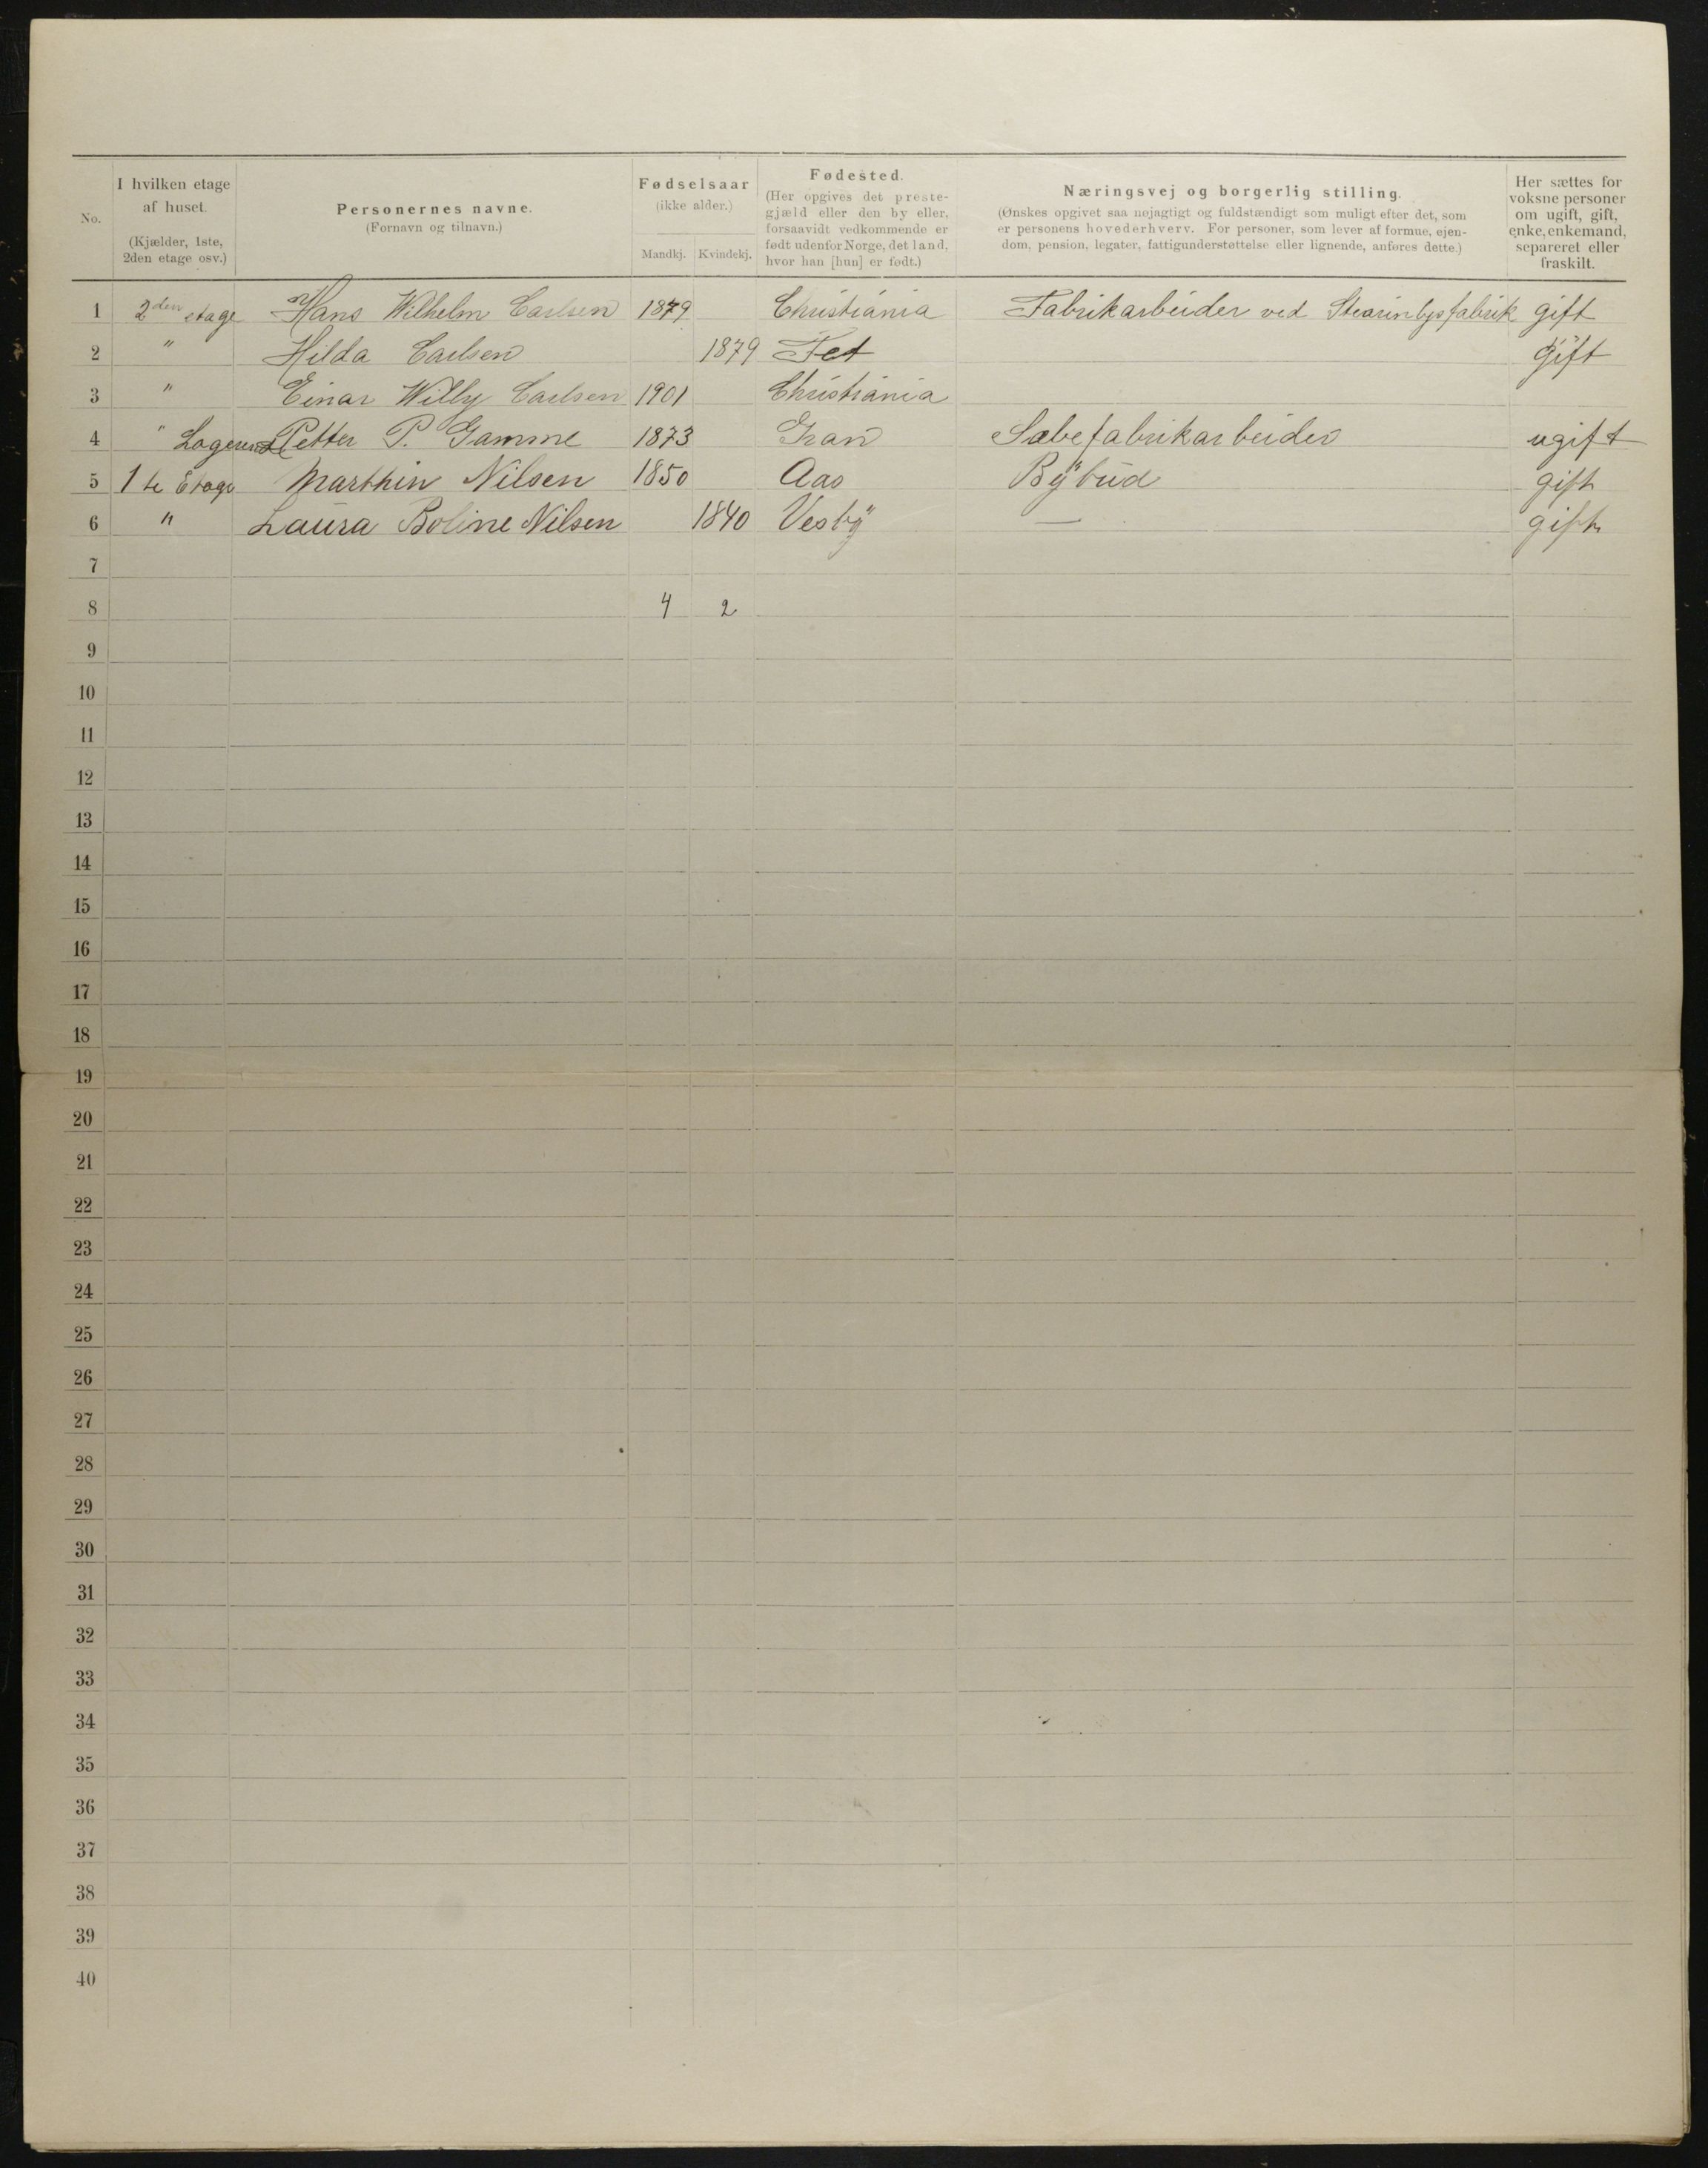 No.
I hvilken etage af huset. (Kjælder, 1ste, 2den etage osv.)
Personernes navne. (Fornavn og tilnavn.)
Fødselsaar (ikke alder.)
Mandkj. Kvindekj.
Fødested. (Her opgives det prestegjæld eller den by eller, forsaavidt vedkommende er født udenfor Norge, det land, hvor han [hun] er født.)
Næringsvej og borgerlig stilling. (Ønskes opgivet saa nøjagtigt og fuldstændigt som muligt efter det, som er personens hovederhverv. For personer, som lever af formue, ejendom, pension, legater, fattigunderstøttelse eller lignende, anføres dette.)
Her sættes for voksne personer om ugift, gift, enke, enkemand, separeret eller fraskilt.
1 2den etage Hans Wilhelm Carlsen 1879 Christiania Fabrikarbeider ved Stearinlysfabrik gift
2 " Hilda Carlsen 1879 Fet gift
3 " Einar Willy Carlsen 1901 Christiania
4 " Logerende Petter P. Gamme 1873 Gran Sæbefabrikarbeider ugift
5 1te Etage Marthin Nilsen 1850 Aas Bÿbud gift
6 " Laura Boline Nilsen 1840 Vesbÿ — gift
7
8 4 2
9
10
11
12
13
14
15
16
17
18
19
20
21
22
23
24
25
26
27
28
29
30
31
32
33
34
35
36
37
38
39
40